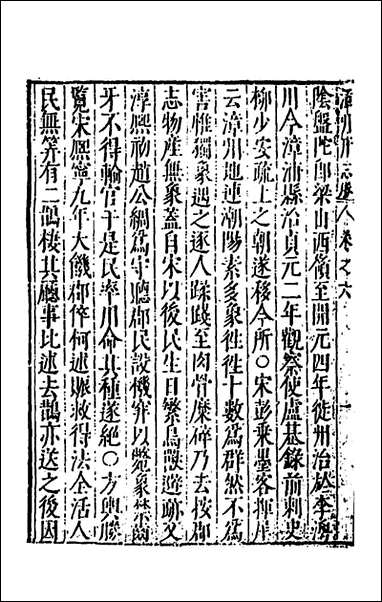 卷之六
陰盤陀郎梁山西嶺至開元四年徙州治於李澳
川今漳浦縣治貞元二年觀察使盧惎錄前刺史
柳少安疏上之朝遂移今所○宋彭乘墨客揮犀
云漳州地連潮陽素多象徃徃十數為群然不為
害惟獨象遇之逐人蹂踐至肉骨糜碎乃去按郡
志物產無象蓋自宋以後民生日繁鳥獸避跡又
淳熙初趙公綢為守聽郡民設機穽以斃象禁
牙不得輸官于是民率用命其種遂絕○方輿勝
覽宋熙寧九年大饑郡倅何述賑救得法全活人
民無筭有二鵲棲其廳事比述去鵲亦送之後因